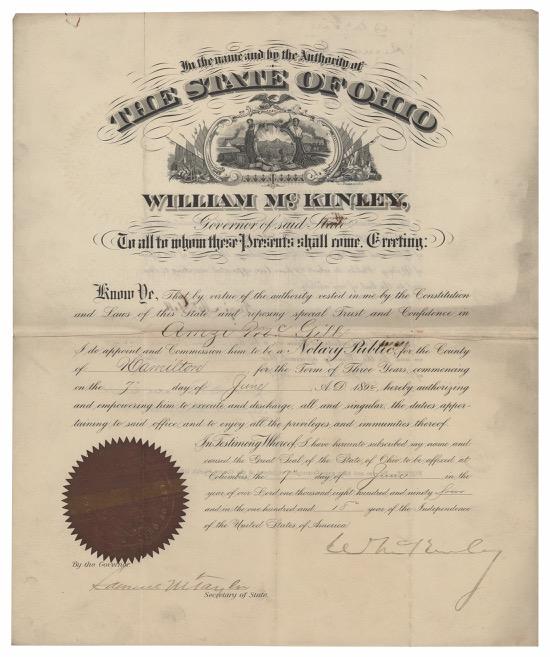 In the name and by the Authority of
THE STATE OF OHIO
WILLIAM McKINLEY,
Governor of said State
To all to whom these Presents shall come, Greeting:
Know Ye, That by virtue of the authority vested in me by the Constitution
and Laws of this State and reposing special Trust and Confidence in
Amzi McGill
I do appoint and Commission him to be a Notary Public, for the County
of Hamilton for the Term of Three Years, commencing
on the 7th day of June A.D. 189 hereby authorizing
and empowering him to execute and discharge, all and singular, the duties apper-
taining to said office, and to enjoy all the privileges and immunities thereof.
In Testimony Whereof, I have hereunto subscribed my name and
caused the Great Seal of the State of Ohio to be affixed at
Columbus, the 7th day of June in the
year of our Lord one thousand eight hundred and ninety four
and in the one hundred and 18th year of the Independence
of the United States of America
W McKinley
By the Governor
Samuel M Taylor
Secretary of State.